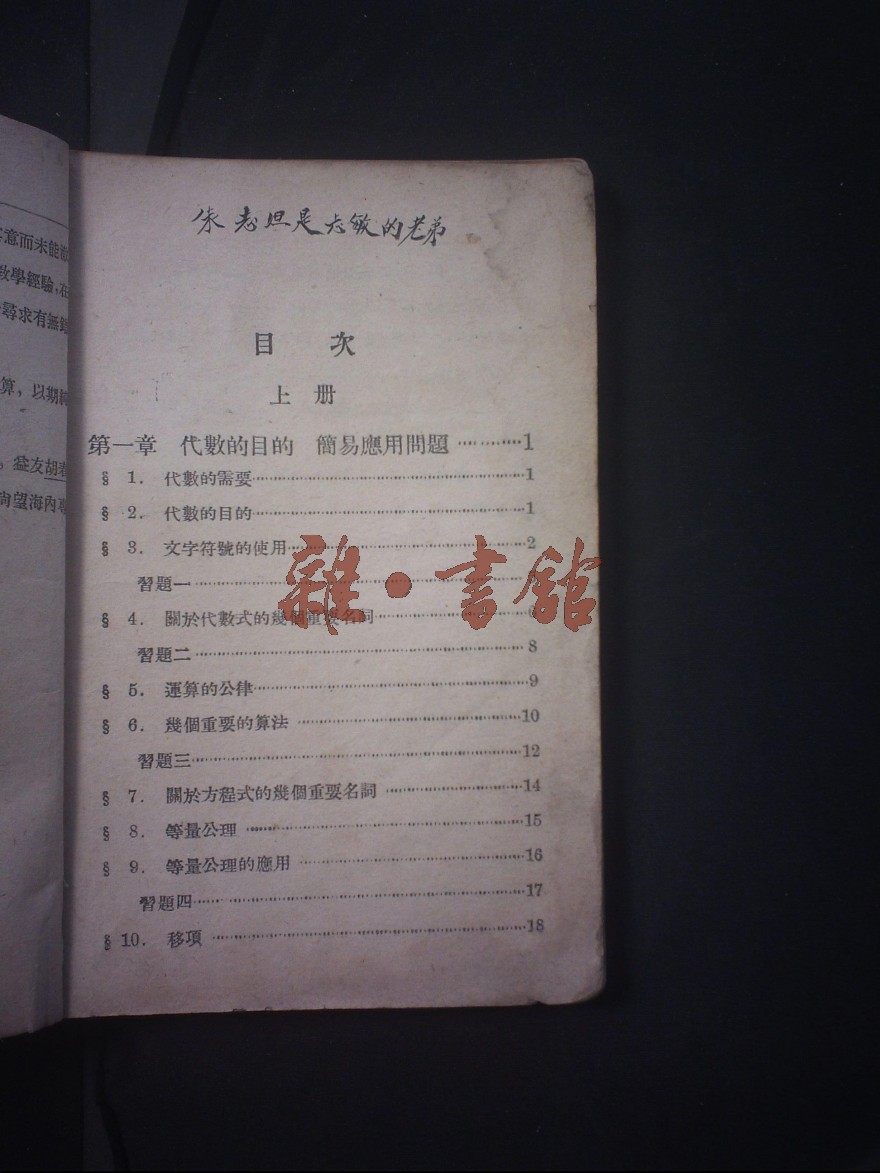 意而未能
教學經驗,在
尋求有無錯
算,以期
。益友胡
尚望海內專
朱志坦是志敏的老弟
目 次
上 册
第一章 代數的目的 簡易應用問題…………1
§ 1. 代數的需要…………1
§ 2. 代數的目的…………1
§ 3. 文字符號的使用…………2
習題一…………
§ 4. 關於代數式的幾個重要名詞…………
習題二…………8
§ 5. 運算的公律…………9
§ 6. 幾個重要的算法…………10
習題三…………12
§ 7. 關於方程式的幾個重要名詞…………14
§ 8. 等量公理…………15
§ 9. 等量公理的應用…………16
習題四…………17
§ 10. 移項…………18
雜·書館